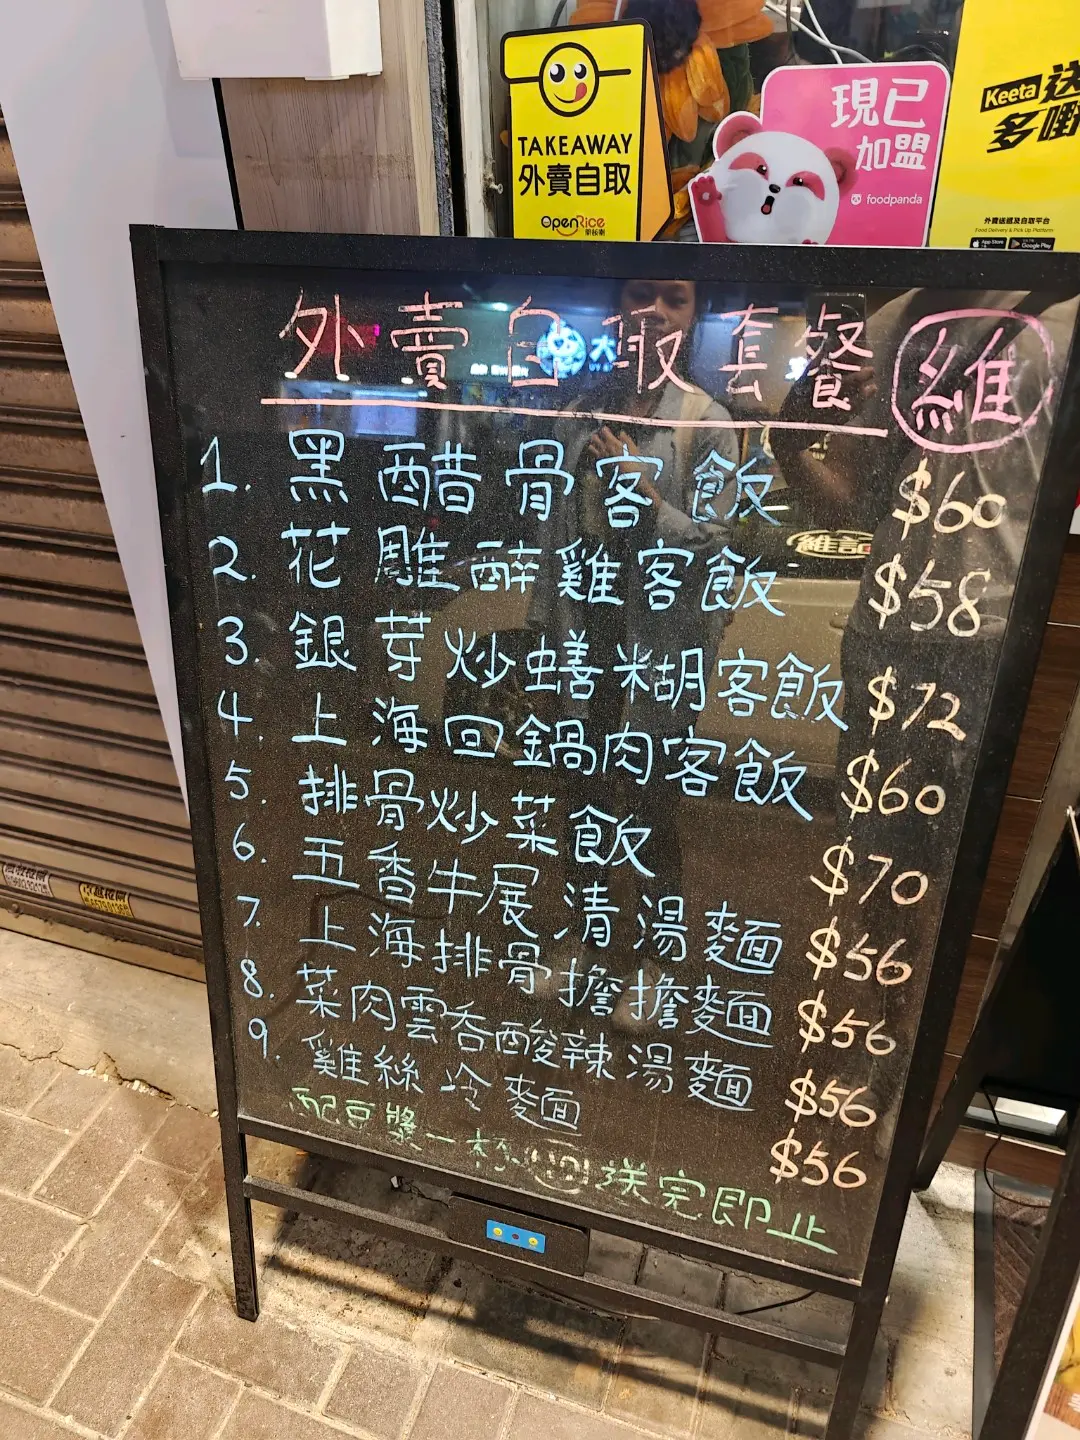 TAKEAWAY
外賣自取
OpenRice
開飯喇
現已
加盟
foodpanda
Keeta 送
多嘢
外賣送餐及自取平台
Food Delivery & Pick Up Platform
App Store
Google Play
外賣自取套餐 維
1. 黑醋骨客飯 $60
2. 花雕醉雞客飯 $58
3. 銀芽炒蟮糊客飯 $72
4. 上海回鍋肉客飯 $60
5. 排骨炒菜飯 $70
6. 五香牛展清湯麵 $56
7. 上海排骨擔擔麵 $56
8. 菜肉雲吞酸辣湯麵 $56
9. 雞絲冷麵 $56
配豆漿一杯 送完即止
維記
大